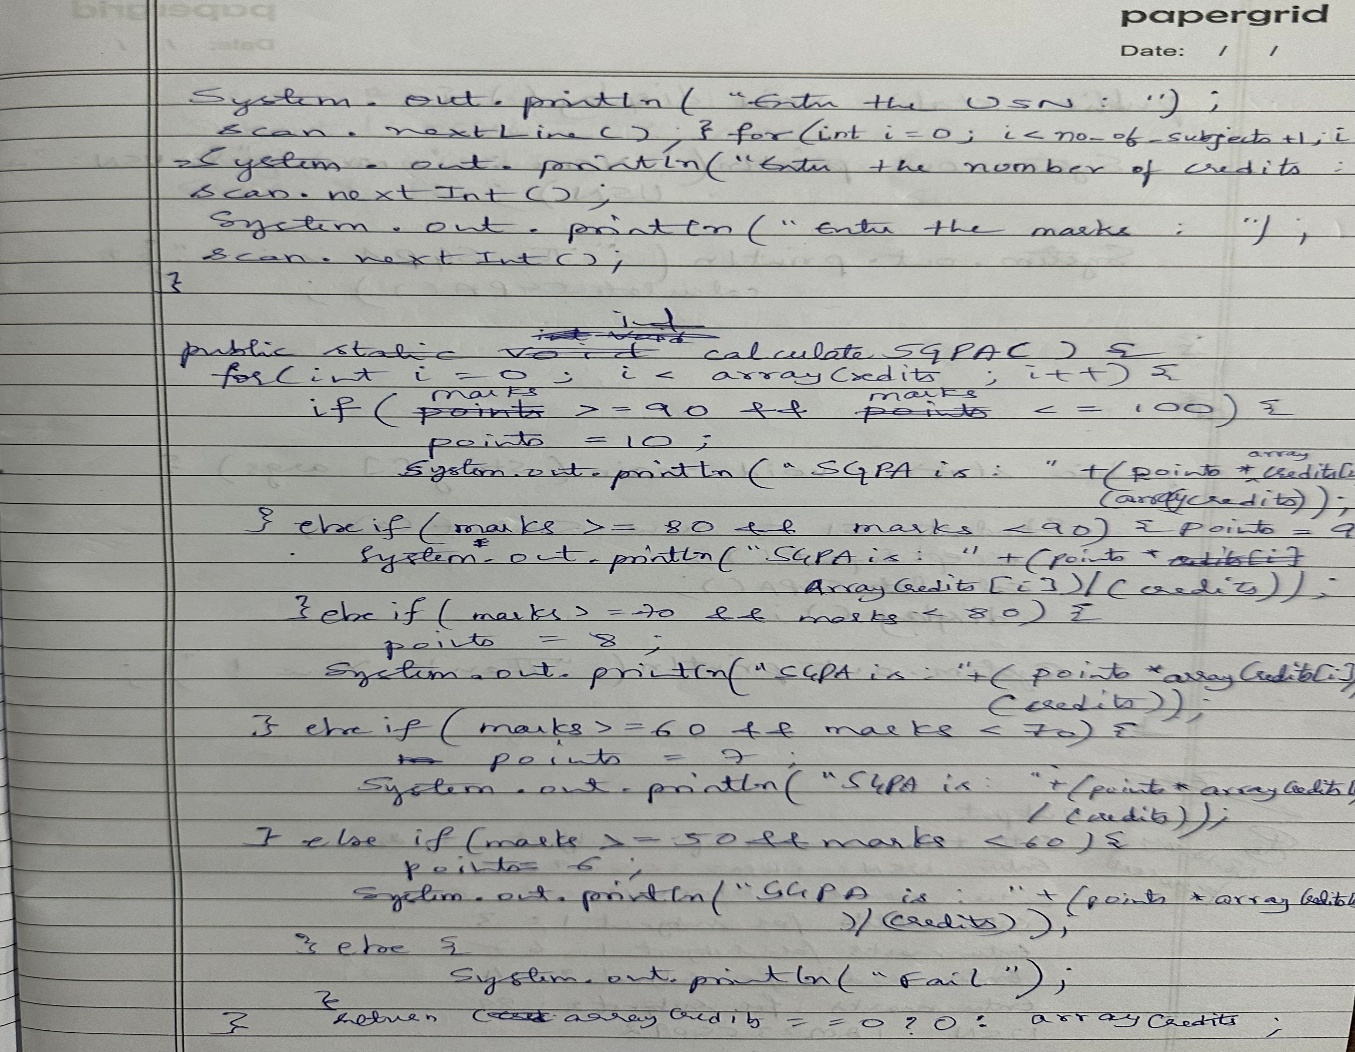 papergrid
Date: / /
System. out. println ( "Enter the USN : ") ;
scan. nextLine () ; } for (int i = 0 ; i < no_of_subjects +1 ; i
System. out. println("Enter the number of credits :
scan. next Int () ;
System. out. println (" Enter the marks : ") ;
scan. next Int () ;
}
int
public static calculate SGPA ( ) {
for ( int i = 0 ; i < array Credits ; i++ ) {
marks marks
if ( >= 90 && <= 100 ) {
points = 10 ;
array
System. out. println (" SGPA is : " + ( points * credits[i
(arraycredits) ) ;
} else if ( marks >= 80 && marks < 90 ) { points = 9
System. out. println ("SGPA is : " + ( points *
Array Credits [i] ) / ( credits ) ) ;
} else if ( marks >= 70 && marks < 80 ) {
points = 8 ;
System. out. println (" SGPA is : " + ( points * array Credits[i]
( credits ) ) ;
} else if ( marks >= 60 && marks < 70 ) {
points = 7 ;
System. out. println ( "SGPA is : " + ( points * array Credits
/ ( credits ) ) ;
} else if ( marks >= 50 && marks < 60 ) {
points = 6 ;
System. out. println ("SGPA is : " + ( points * array Credits
) / ( credits ) ) ;
} else {
System. out. println ( " Fail " ) ;
}
} return ( array Credits == 0 ? 0 : array Credits ;